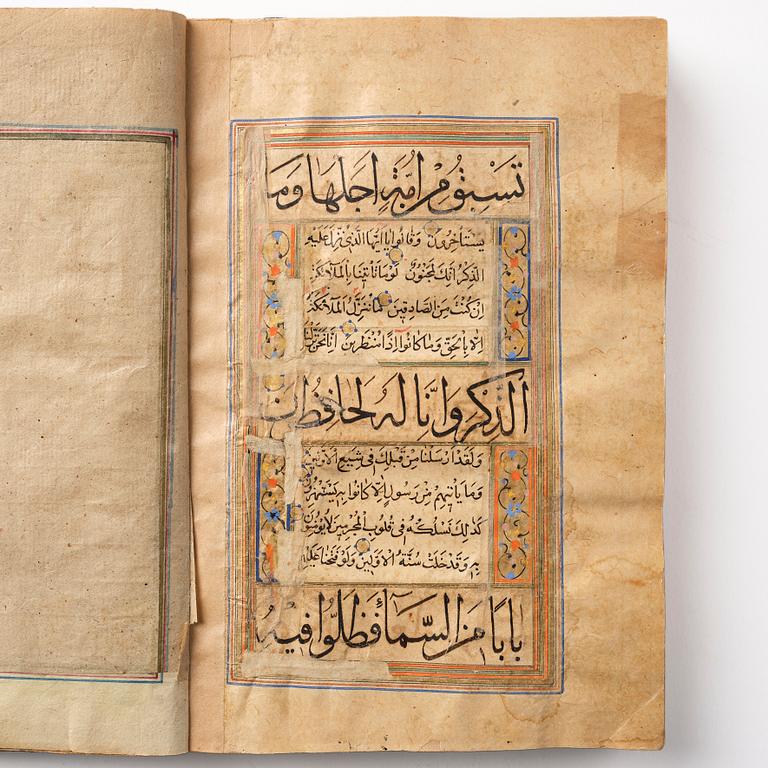 تسبق من امة اجلها وما
يستأخرون وقالوا يا ايها الذي نزل عليه
الذكر انك لمجنون لو ما تأتينا بالملائكة
ان كنت من الصادقين ما ننزل الملائكة
الا بالحق وما كانوا اذا منظرين انا نحن نزلنا
الذكر وانا له لحافظون
ولقد ارسلنا من قبلك في شيع الاولين
وما يأتيهم من رسول الا كانوا به يستهزؤن
كذلك نسلكه في قلوب المجرمين لا يؤمنون
به وقد خلت سنة الاولين ولو فتحنا عليهم
بابا من السماء فظلوا فيه